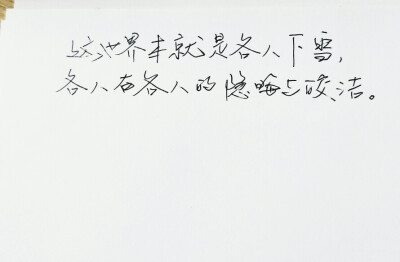 这世界本就是各人下雪，
各人有各人的隐晦与皎洁。